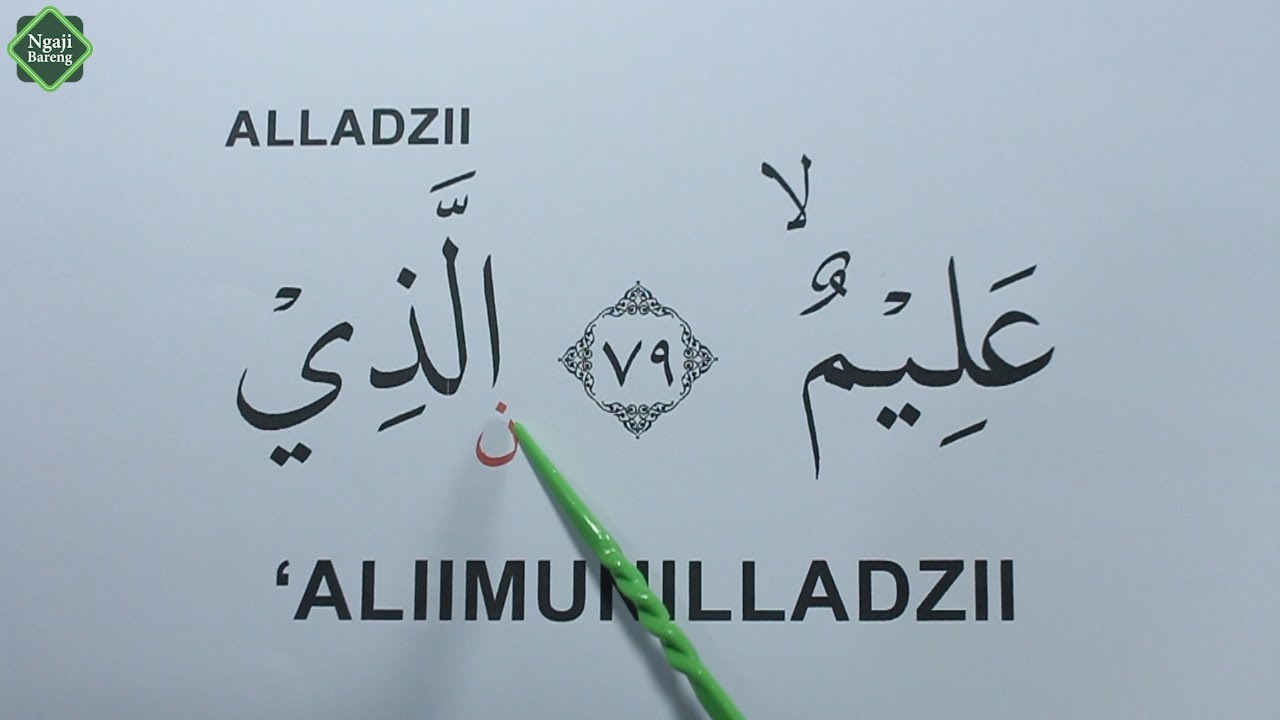 Ngaji
Bareng
ALLADZII
لا
عَلِيْمٌ ٧٩ الَّذِيْ
ن
‘ALIIMUNILLADZII